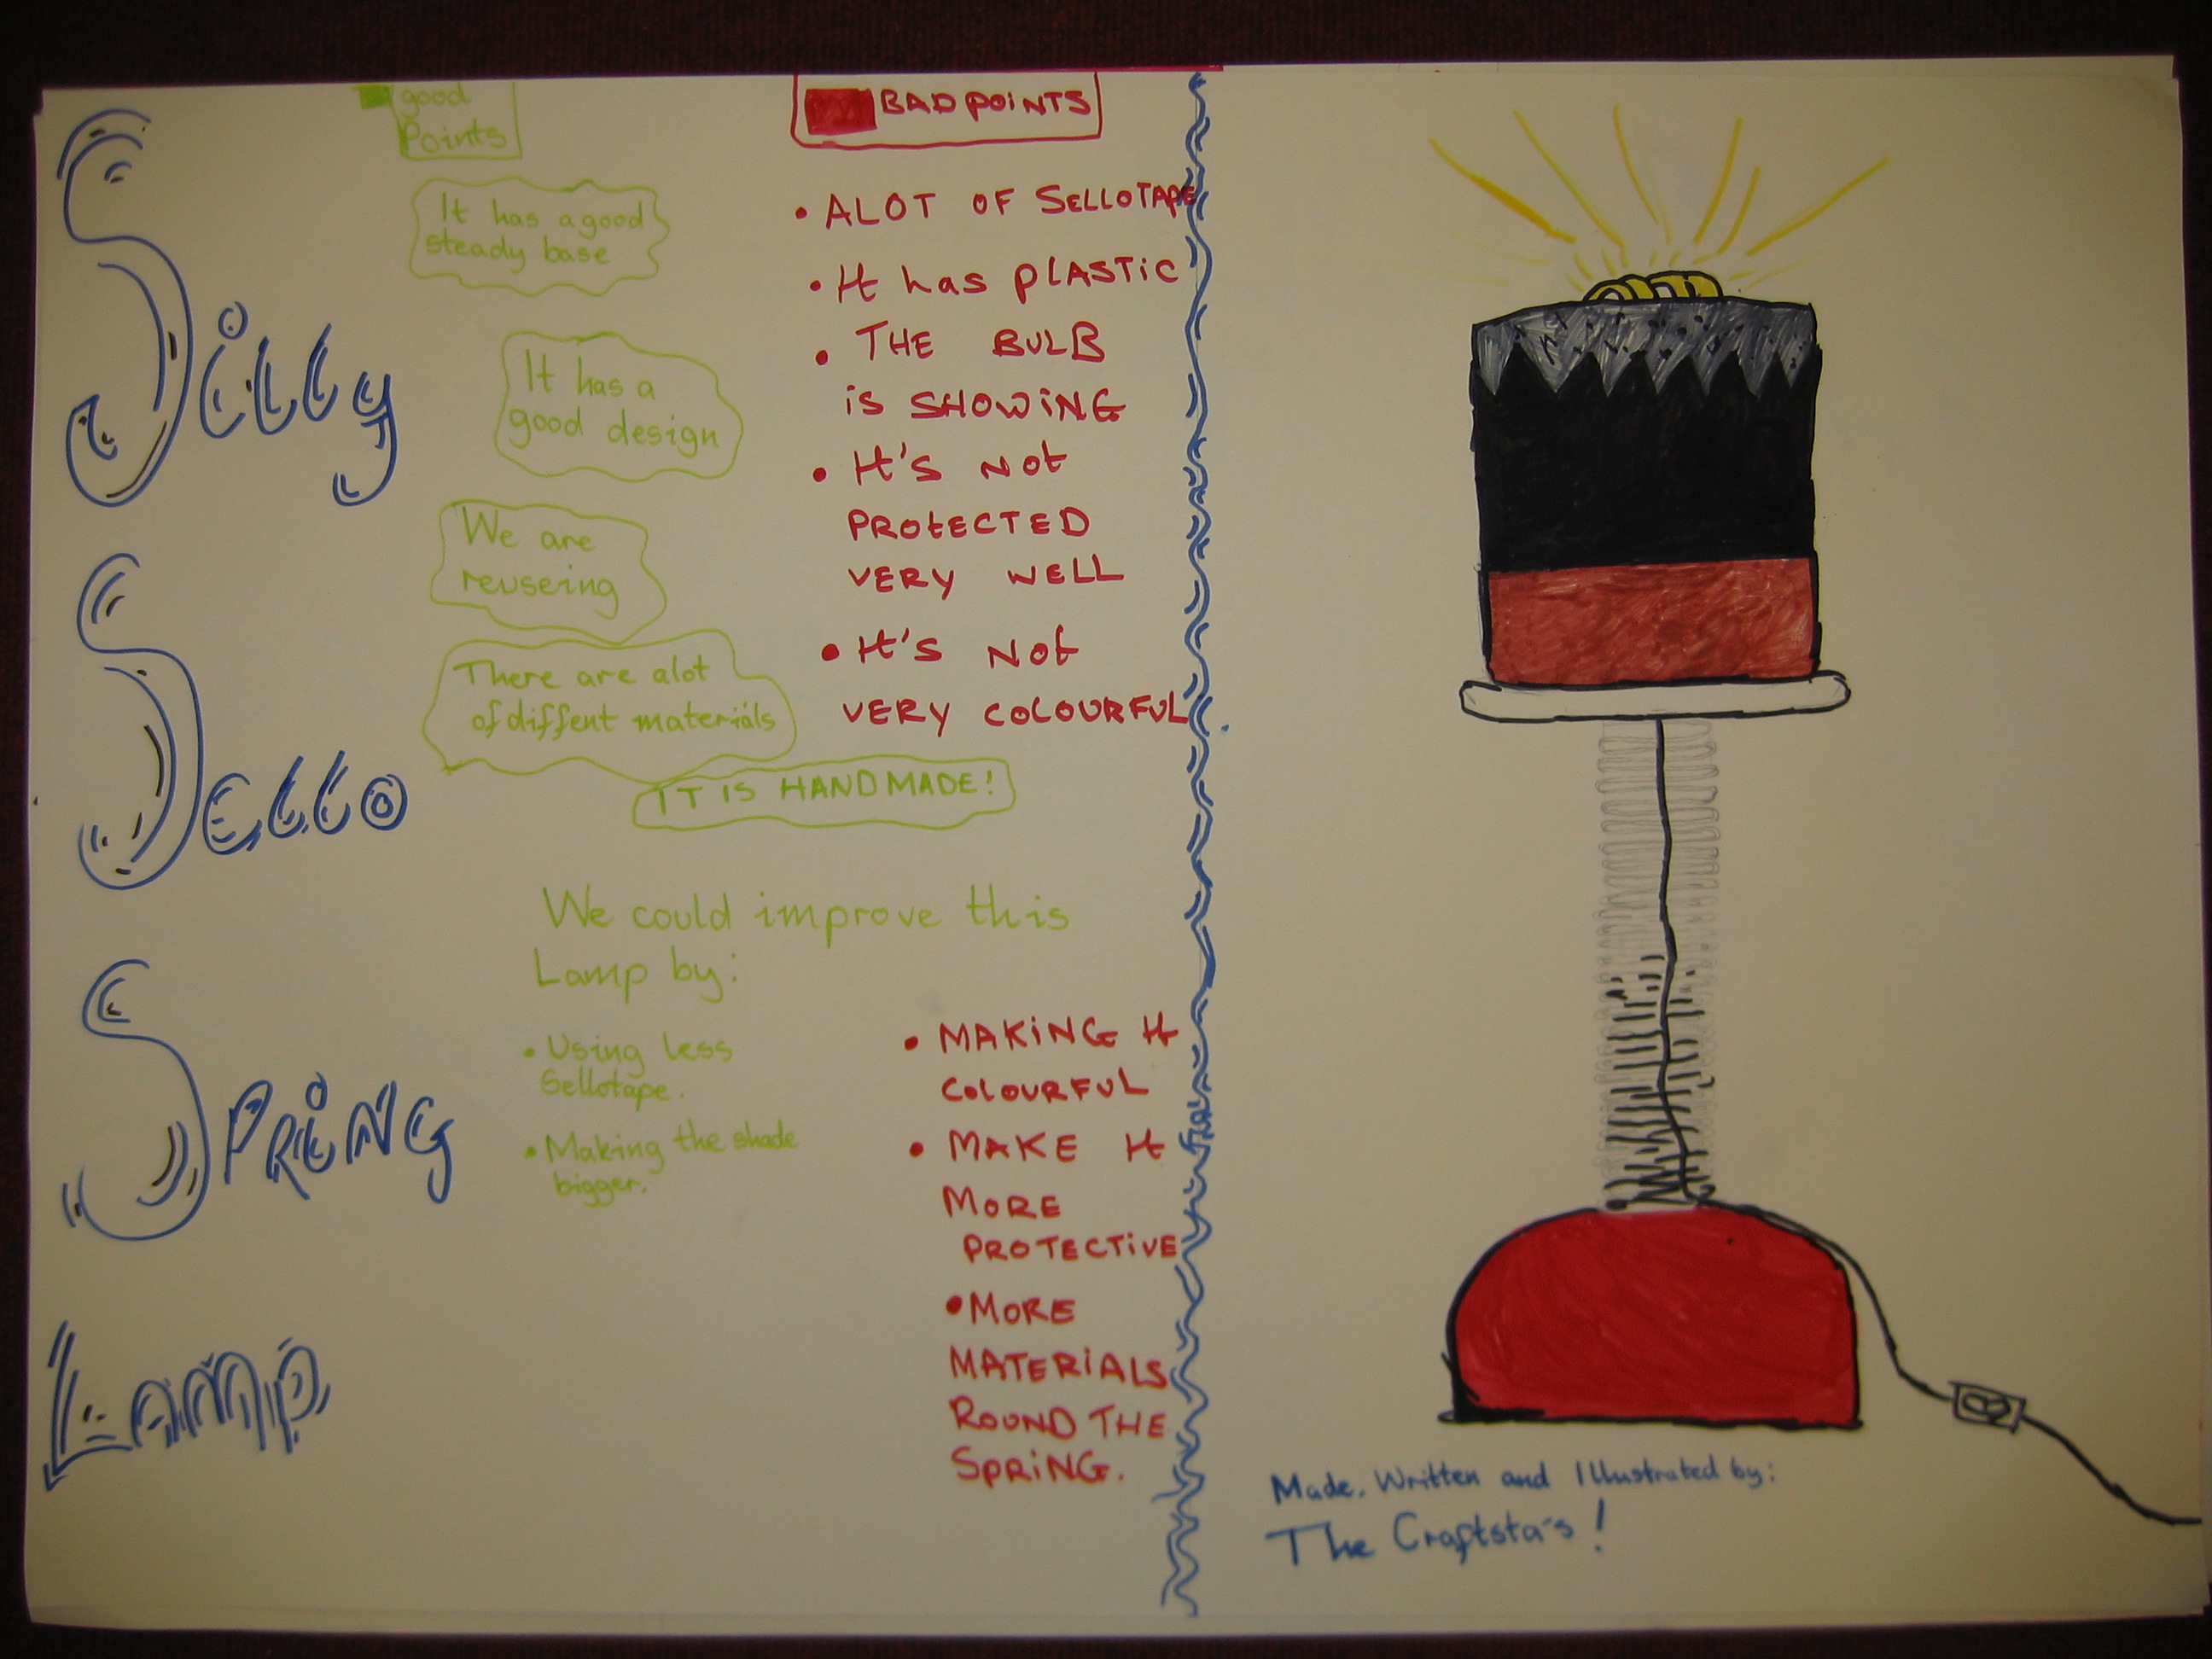 Silly
Sello
Spring
Lamp
good
Points
It has a good
steady base
It has a
good design
We are
reuseing
There are alot
of diffent materials
IT IS HANDMADE!
BAD POiNTS
• ALOT OF SELLOTAPE
• It has pLASTiC
• THE BULB
is SHOWiNG
• It's Not
PROtECTED
VERY WELL
• It's Not
VERY COLOURFUL
We could improve this
Lamp by:
• Using less
Sellotape.
• Making the shade
bigger.
• MAKiNG It
COLOURFUL
• MAKE It
MORE
PROTECTiVE
• MORE
MATERiALS
ROUND THE
SPRiNG.
Made, Written and Illustrated by:
The Craftsta's!